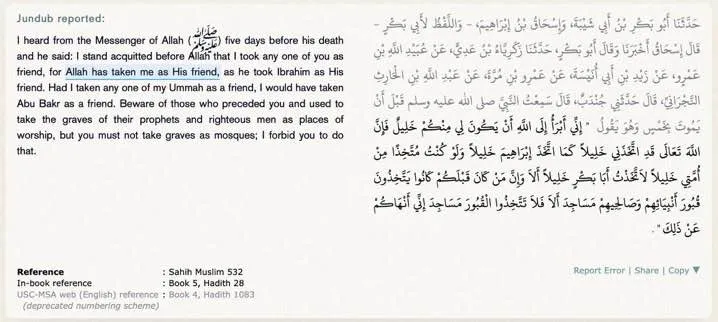 Jundub reported:
I heard from the Messenger of Allah (ﷺ) five days before his death
and he said: I stand acquitted before Allah that I took any one of you as
friend, for Allah has taken me as His friend, as he took Ibrahim as His
friend. Had I taken any one of my Ummah as a friend, I would have taken
Abu Bakr as a friend. Beware of those who preceded you and used to
take the graves of their prophets and righteous men as places of
worship, but you must not take graves as mosques; I forbid you to do
that.
حَدَّثَنَا أَبُو بَكْرِ بْنُ أَبِي شَيْبَةَ، وَإِسْحَاقُ بْنُ إِبْرَاهِيمَ، - وَاللَّفْظُ لأَبِي بَكْرٍ -
قَالَ إِسْحَاقُ أَخْبَرَنَا وَقَالَ أَبُو بَكْرٍ، حَدَّثَنَا زَكَرِيَّاءُ بْنُ عَدِيٍّ، عَنْ عُبَيْدِ اللَّهِ بْنِ
عَمْرٍو، عَنْ زَيْدِ بْنِ أَبِي أُنَيْسَةَ، عَنْ عَمْرِو بْنِ مُرَّةَ، عَنْ عَبْدِ اللَّهِ بْنِ الْحَارِثِ
النَّجْرَانِيِّ، قَالَ حَدَّثَنِي جُنْدَبٌ، قَالَ سَمِعْتُ النَّبِيَّ صلى الله عليه وسلم قَبْلَ أَنْ
يَمُوتَ بِخَمْسٍ وَهُوَ يَقُولُ " إِنِّي أَبْرَأُ إِلَى اللَّهِ أَنْ يَكُونَ لِي مِنْكُمْ خَلِيلٌ فَإِنَّ
اللَّهَ تَعَالَى قَدِ اتَّخَذَنِي خَلِيلاً كَمَا اتَّخَذَ إِبْرَاهِيمَ خَلِيلاً وَلَوْ كُنْتُ مُتَّخِذًا مِنْ
أُمَّتِي خَلِيلاً لاَتَّخَذْتُ أَبَا بَكْرٍ خَلِيلاً أَلاَ وَإِنَّ مَنْ كَانَ قَبْلَكُمْ كَانُوا يَتَّخِذُونَ
قُبُورَ أَنْبِيَائِهِمْ وَصَالِحِيهِمْ مَسَاجِدَ أَلاَ فَلاَ تَتَّخِذُوا الْقُبُورَ مَسَاجِدَ إِنِّي أَنْهَاكُمْ
عَنْ ذَلِكَ " .
Reference : Sahih Muslim 532
In-book reference : Book 5, Hadith 28
USC-MSA web (English) reference : Book 4, Hadith 1083
(deprecated numbering scheme)
Report Error | Share | Copy ▼